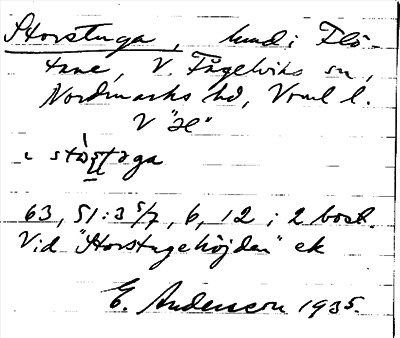 Storstuga, hmd i Flö-
tane, V. Fågelviks sn,
Nordmarks hd, Vrml l.
V "æ"
i stòṣtøga
63, 51:3 5/7, 6, 12 ; 2 bost.
Vid "Storstugehöjden" ek
E. Andersson 1935.